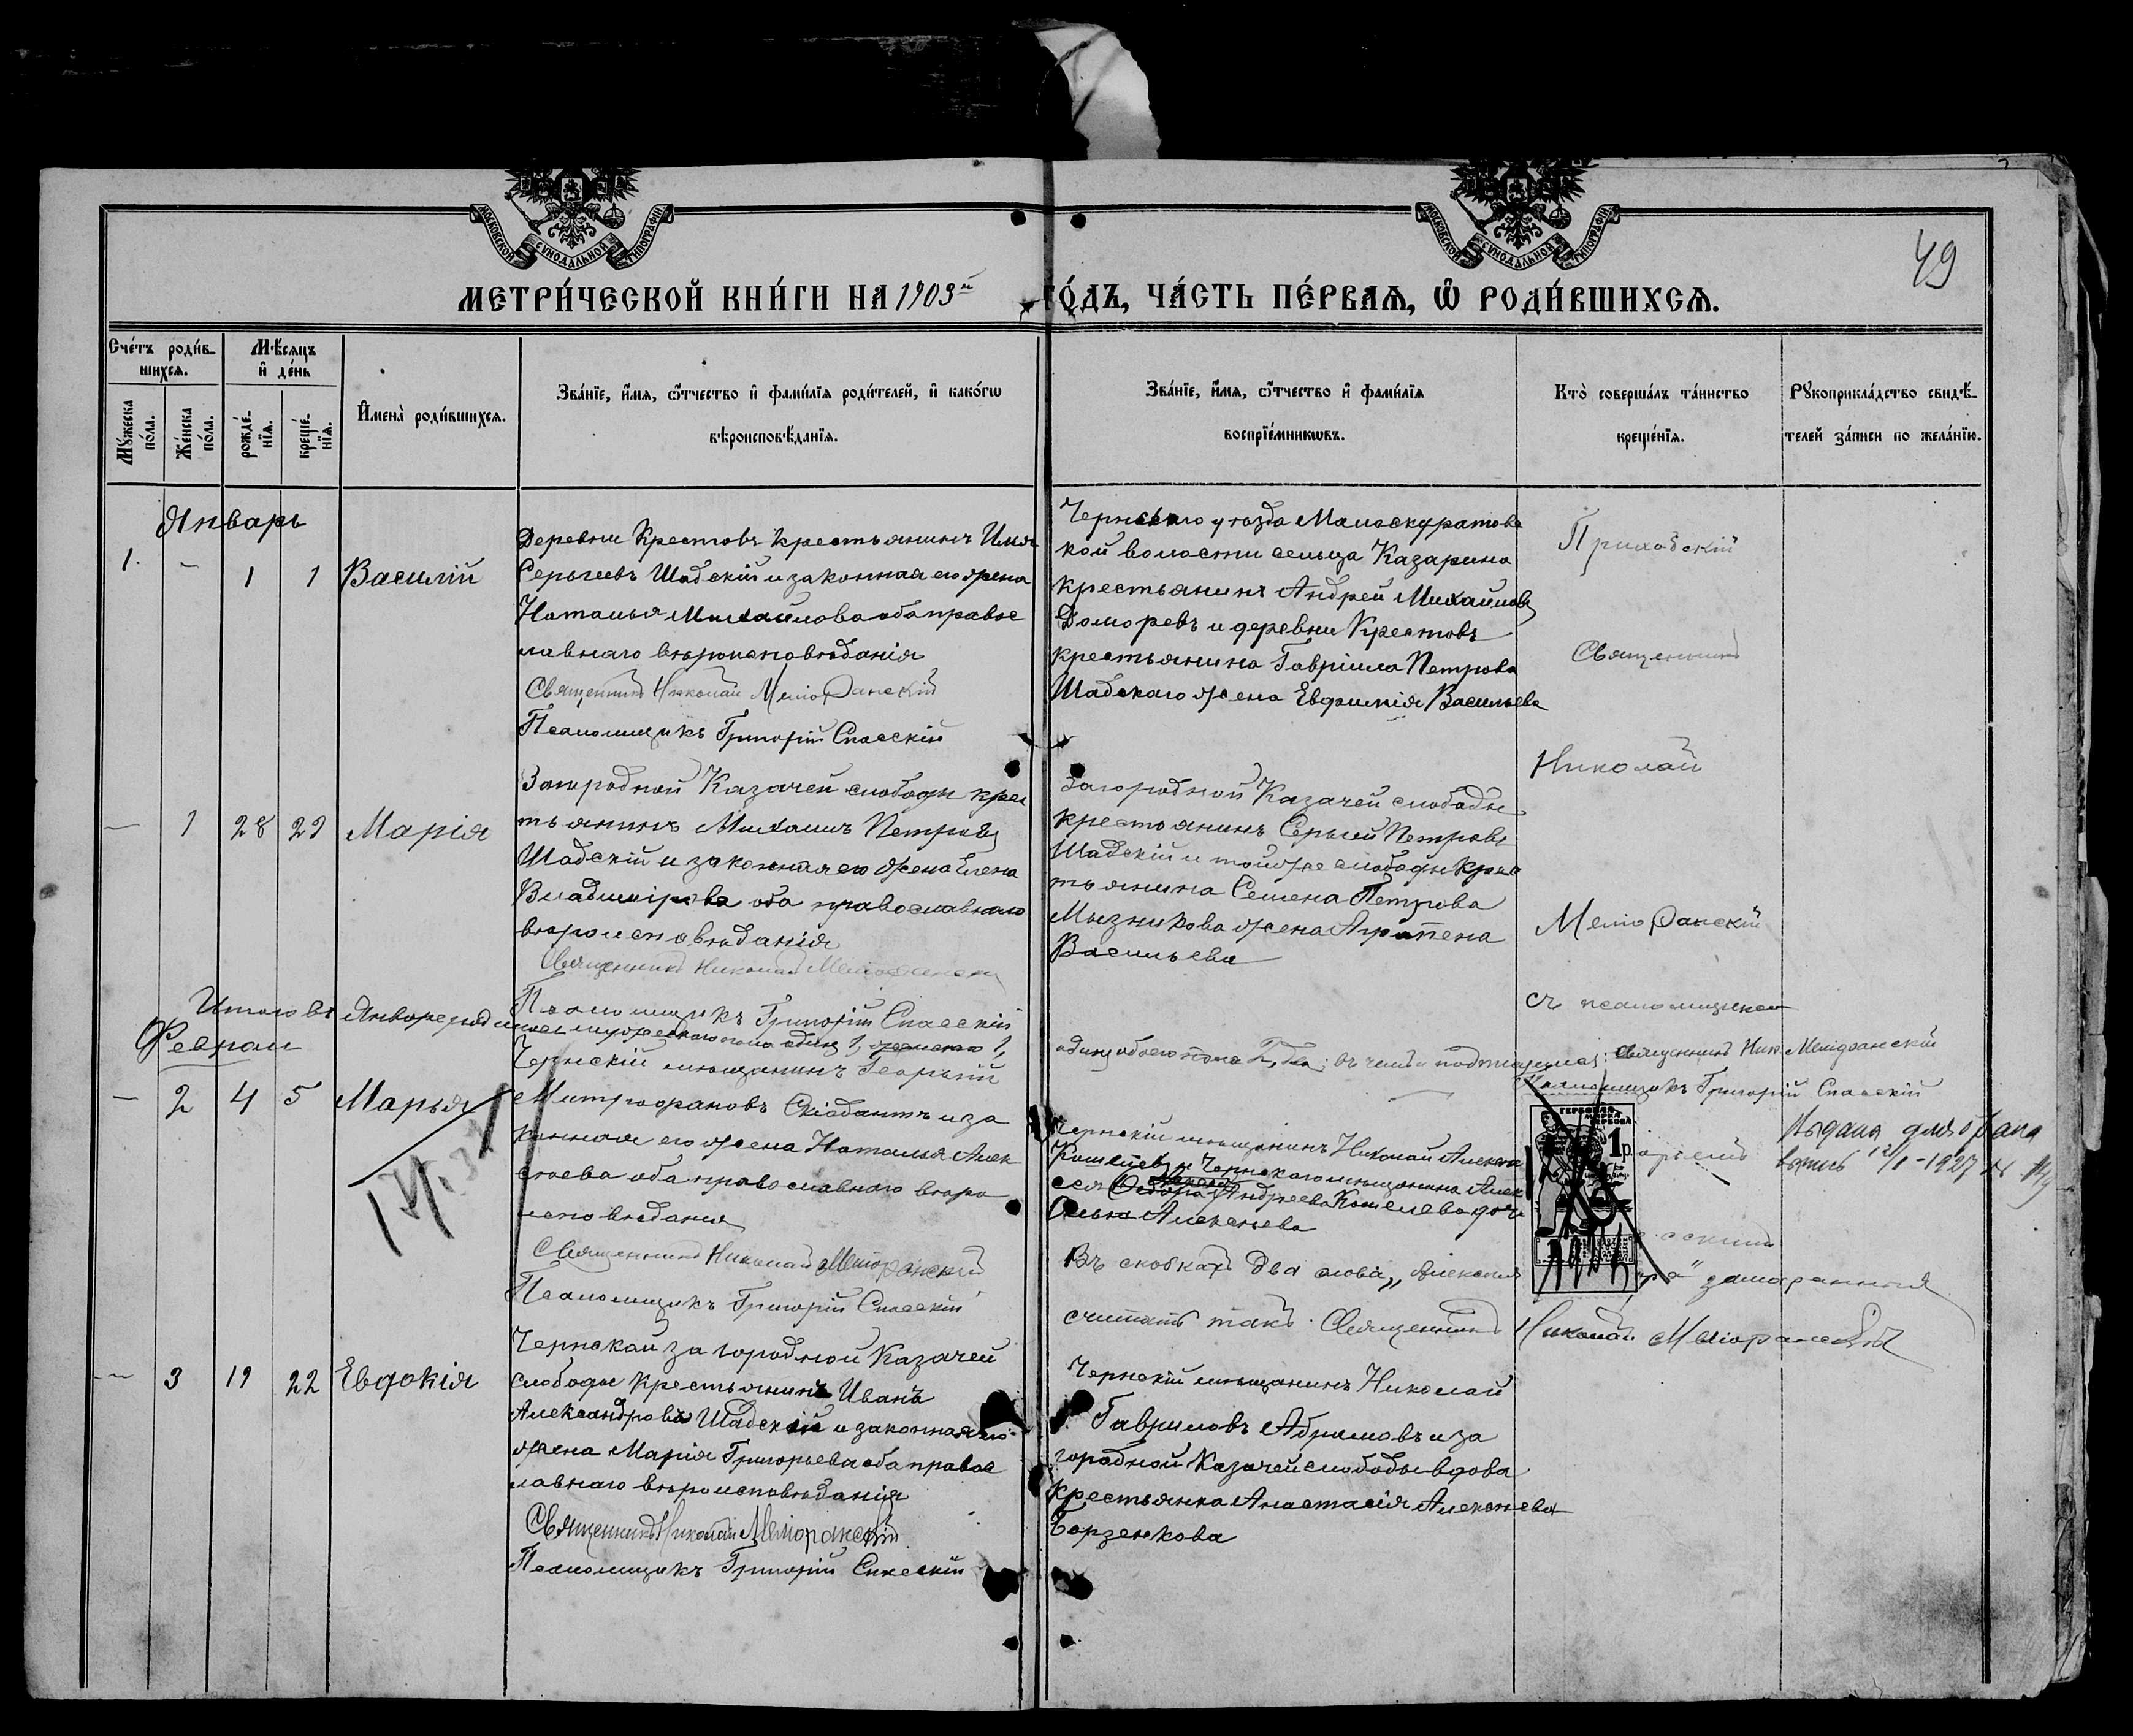 49
МОСКОВСКОЙ СУНОДАЛЬНОЙ ТИПОГРАФІИ
МОСКОВСКОЙ СУНОДАЛЬНОЙ ТИПОГРАФІИ
МЕТРИ́ЧЕСКОЙ КНИ́ГИ НА 1903й ГО́ДЪ, ЧА́СТЬ ПЕ́РВАѦ, Ѽ РОДИ́ВШИХСѦ.
Сче́тъ роди́вшихсѧ.
Мѹ́жеска по́ла.
Же́нска по́ла.
Мѣ́сѧцъ и҆ де́нь
рожде́нїѧ.
креще́нїѧ.
И҆мена̀ роди́вшихсѧ.
Зва́нїе, и҆́мѧ, ѻ҆́тчество и҆ фами́лїѧ роди́телей, и҆ како́гѡ
вѣроисповѣ́данїѧ.
Зва́нїе, и҆́мѧ, ѻ҆́тчество и҆ фами́лїѧ
воспрїе́мникѡвъ.
Кто̀ соверша́лъ та́инство
креще́нїѧ.
Рѹкоприкла́дство свидѣ́телей за́писи по жела́нїю.
Январь
1. - 1 1 Василій
Деревни Крестовъ крестьянинъ Илья
Сергѣевъ Шадскій и законная его жена
Наталья Михайлова оба правос
лавнаго вѣроисповѣданія
Священникъ Николай Меліоранскій
Псаломщикъ Григорій Спасскій
Чернскаго уѣзда Малоскуратовс
кой волости сельца Казарина
крестьянинъ Андрей Михайловъ
Доморевъ и деревни Крестовъ
крестьянина Гавріила Петрова
Шадскаго жена Евфимія Васильева
Приходскій
Священникъ
Николай
Меліоранскій
съ псаломщикомъ
— 1 28 29 Марія
Загородной Казачей слободы крес
тьянинъ Михаилъ Петровъ
Шадскій и законная его жена Елена
Владимірова оба православнаго
вѣроисповѣданія
Священникъ Николай Меліоранскій
Псаломщикъ Григорій Спасскій
Загородной Казачей слободы
крестьянинъ Сергѣй Петровъ
Шадскій и той же слободы крес
тьянина Семена Петрова
Мызникова жена Агрипена
Васильева
Итого въ Январе родилось мужескаго пола одинъ 1, женскаго 1,
одинъ обоего пола 2, два; въ чемъ и подписуемся: Священникъ Ник. Меліоранскій
Псаломщикъ Григорій Спасскій
Февраль
— 2 4 5 Марья
Чернскій мѣщанинъ Георгій
Митрофановъ и за
конная его жена Наталья Алек
сѣева оба православнаго вѣро
исповѣданія
Священникъ Николай Меліоранскій
Псаломщикъ Григорій Спасскій
Чернскій мѣщанинъ Николай
Кошелевъ и Чернскаго мѣщанина Алек
сея Андреева Кошелева дочь
Алексѣева
Въ скобкахъ два слова „Алексея
замаранныя
считать такъ. Священникъ Николай Меліоранскій
ГЕРБОВАЯ МАРКА
1 р.
Выдана для брака
выпись 12/I-1927
— 3 19 22 Евдокія
Чернской загородной Казачей
слободы крестьянинъ Иванъ
Александровъ Шадскій и законная его
жена Марія Григорьева оба правос
лавнаго вѣроисповѣданія
Священникъ Николай Меліоранскій
Псаломщикъ Григорій Спасскій
Чернскій мѣщанинъ Николай
Гавриловъ Абрамовъ и за
городной Казачей слободы вдова
крестьянка Анастасія Алексѣева
Борзенкова